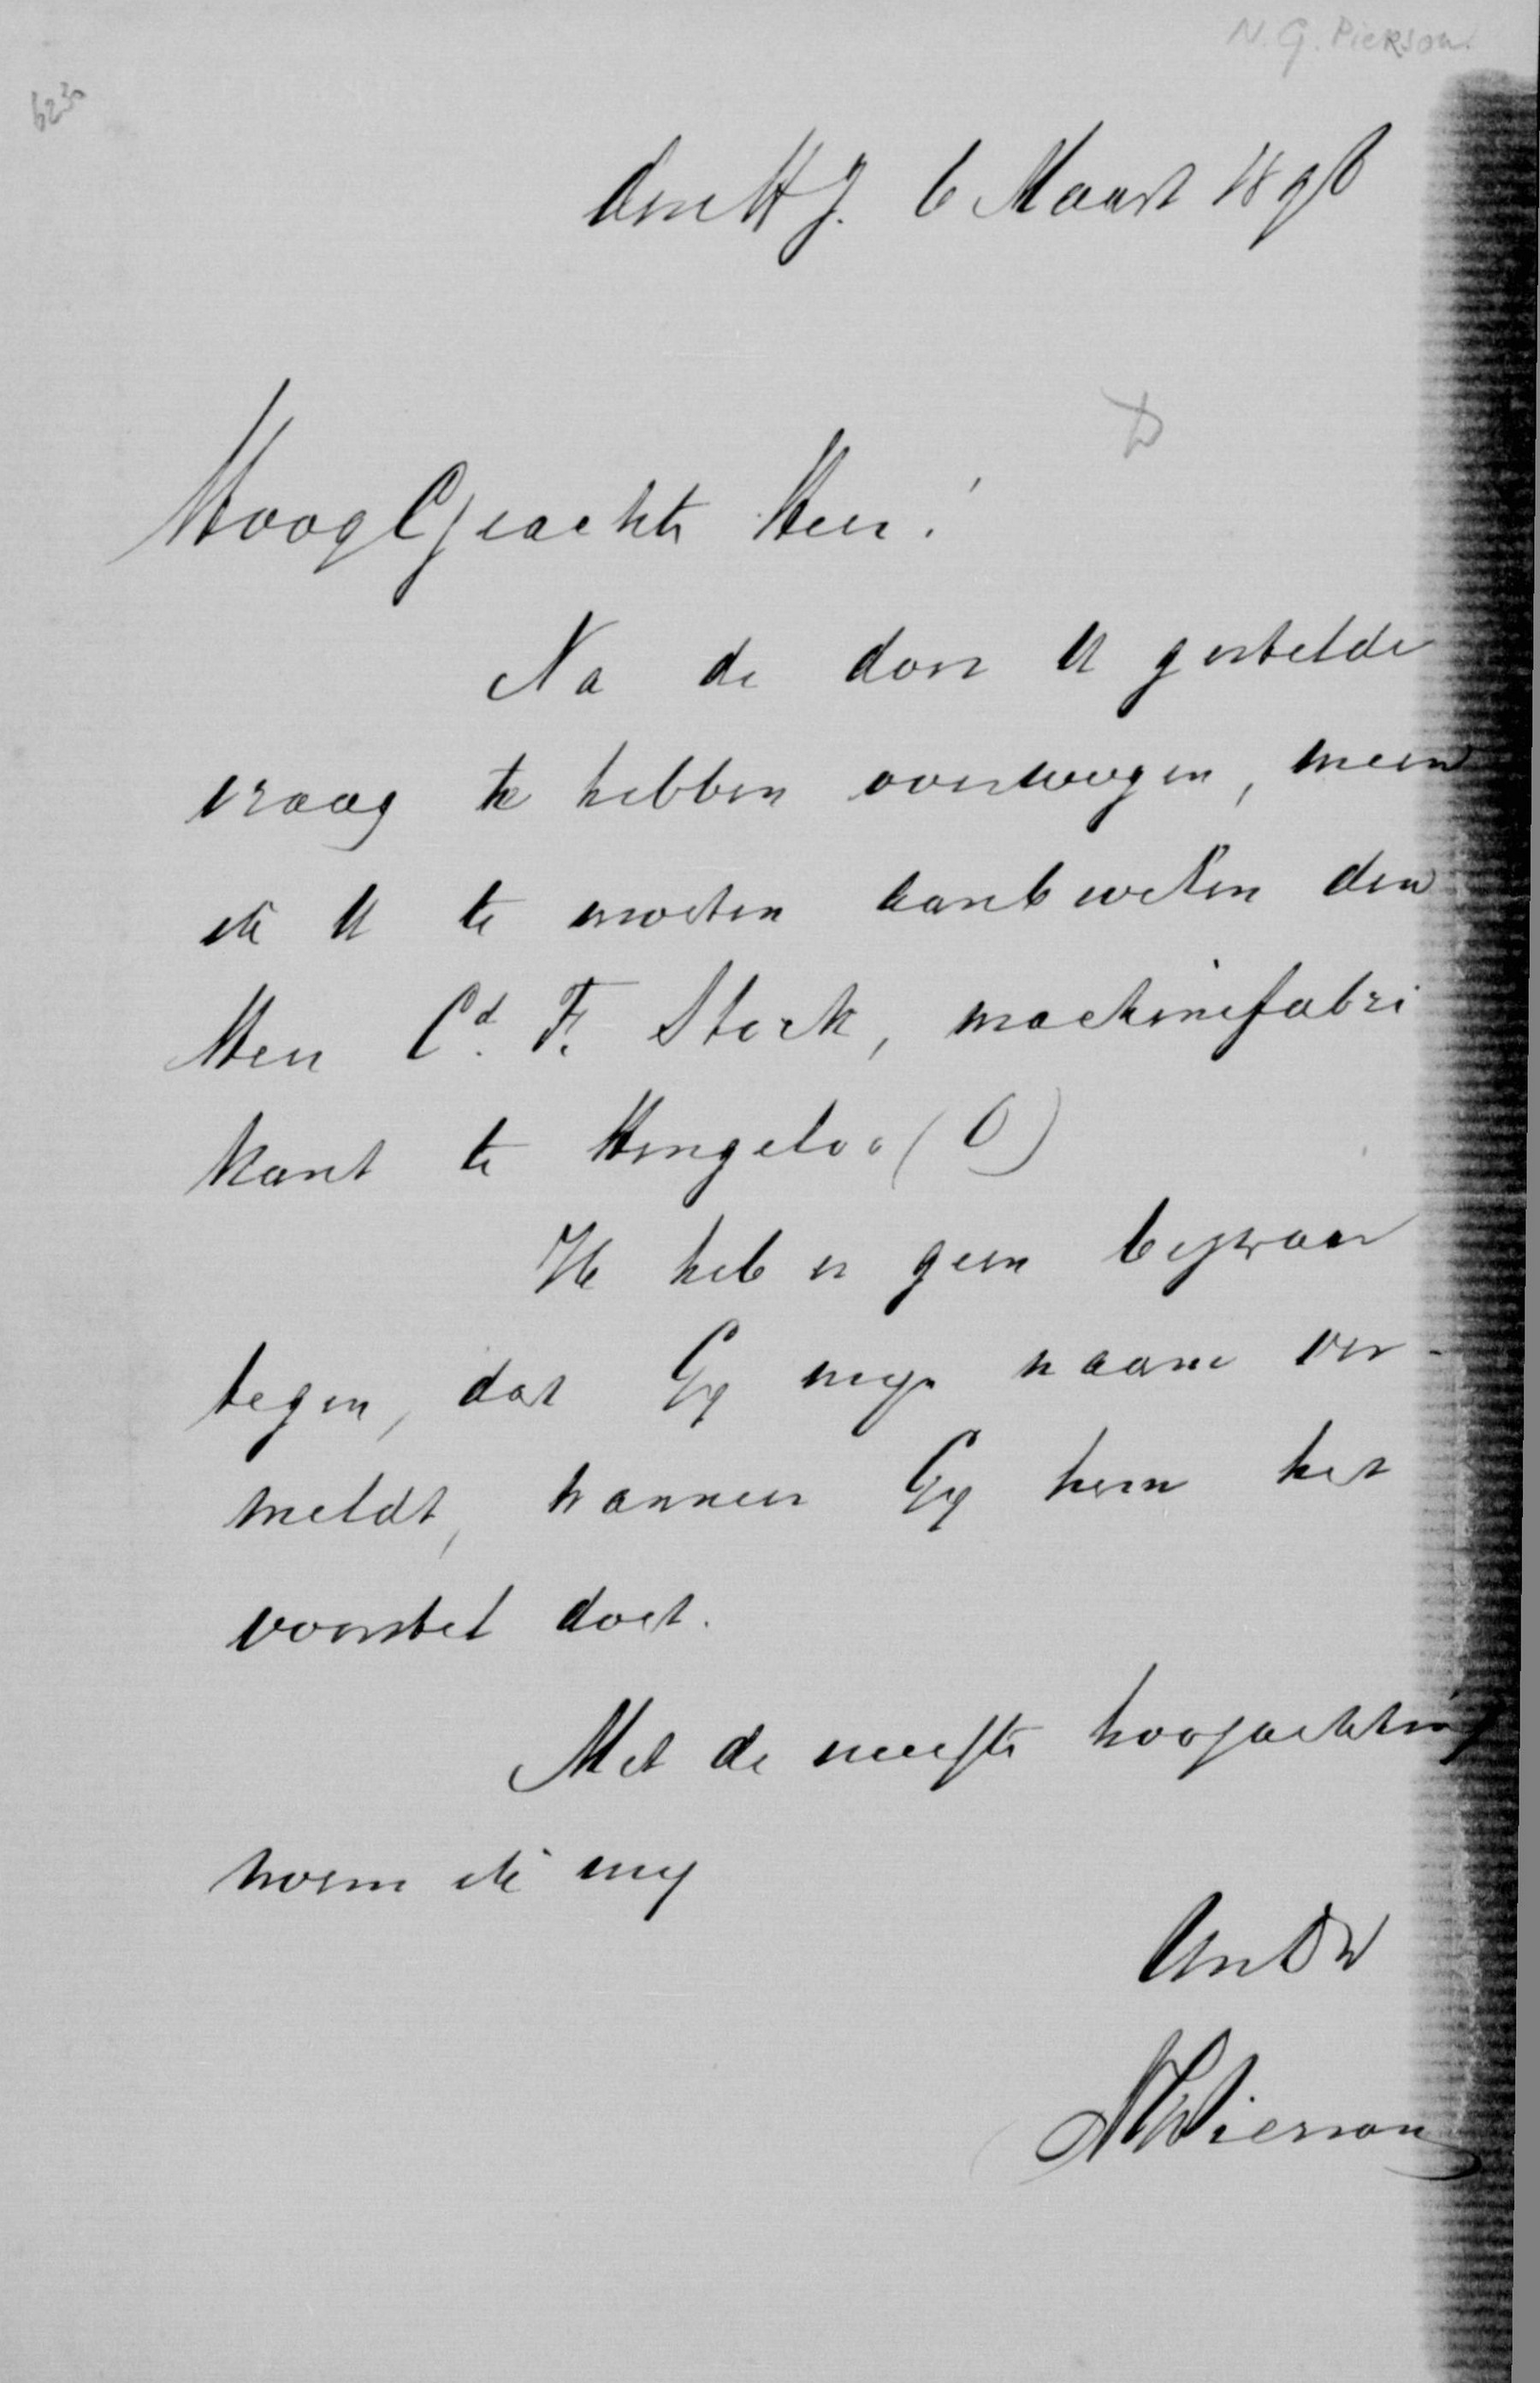 N. G. Pierson.
623
den H g. 6 Maart 1896
HoogGeachte Heer!
Na de door U gestelde
vraag te hebben overwogen, meen
ik U te moeten aanbevelen den
Heer Cd. F. Stork, machinefabri
kant te Hengeloo (O)
Ik heb er geen bezwaar
tegen, dat Gij mijn naam ver-
meldt, wanneer Gij hem het
voorstel doet.
Met de meeste hoogachting
noem ik mij
UwDW
NGPierson